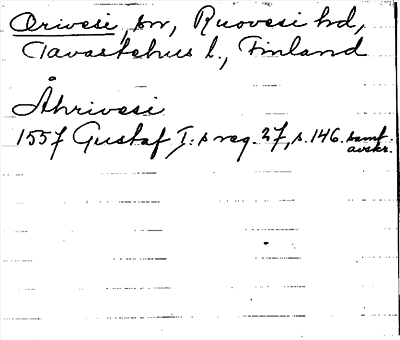 Orivesi, sn, Ruovesi hd,
Tavastehus l., Finland
Åhrivesi
1557 Gustaf I:s reg. 27, s. 146. samt. avskr.